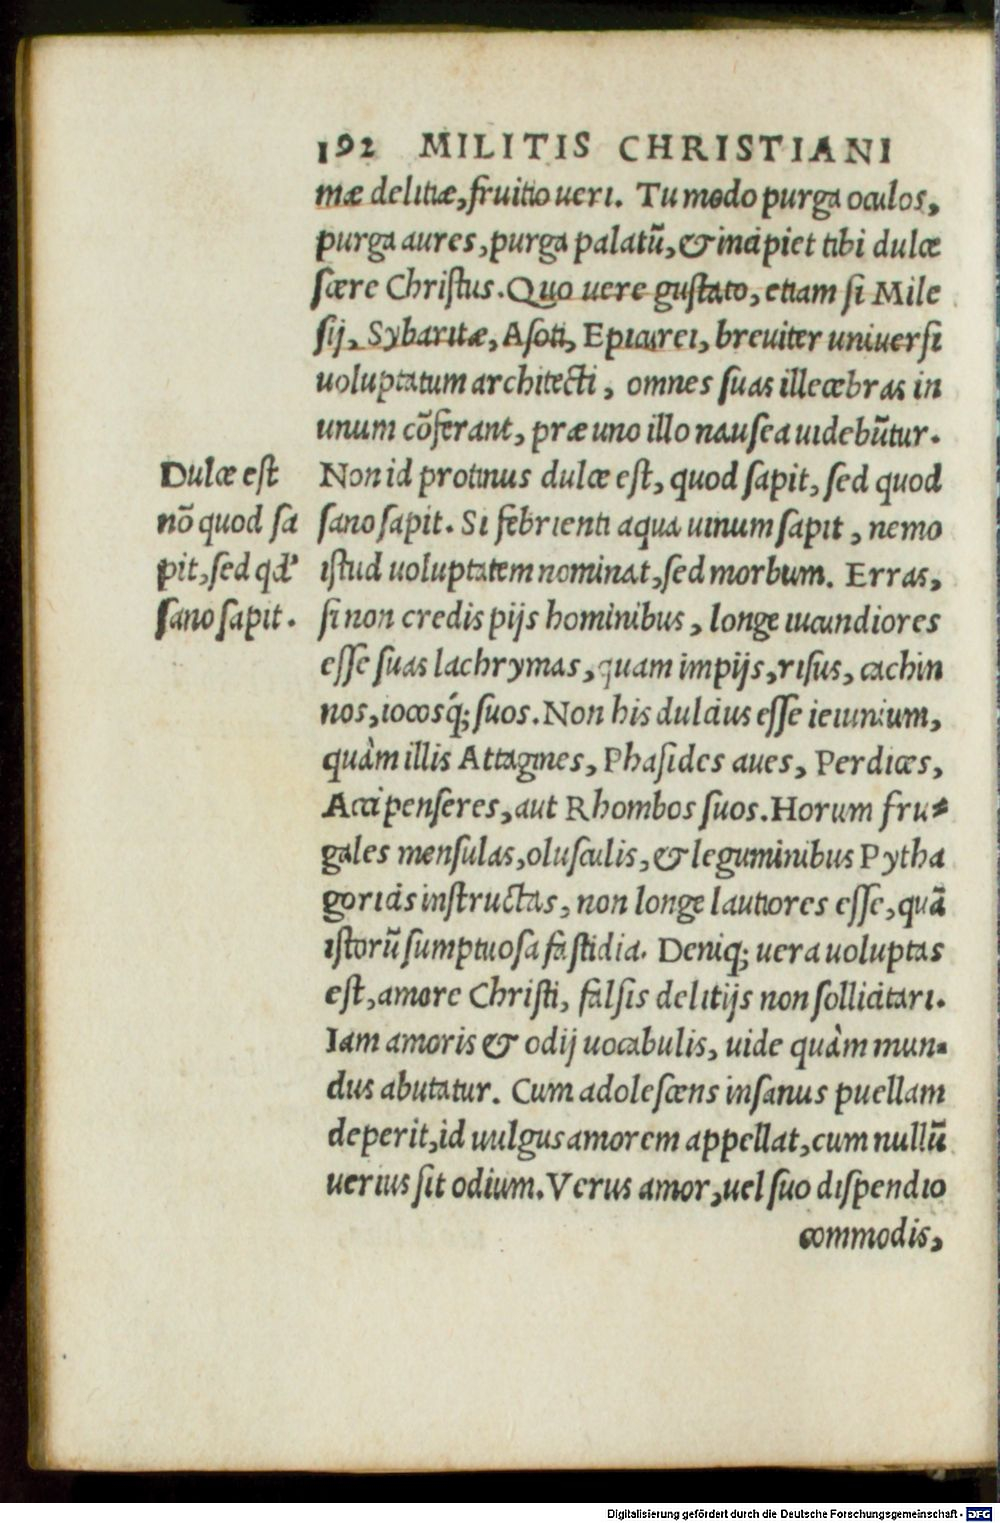 192 MILITIS CHRISTIANI
mæ delitiæ, fruitio ueri. Tu modo purga oculos,
purga aures, purga palatū, & incipiet tibi dulce
ſcere Chriſtus. Quo uere guſtato, etiam ſi Mile
ſij, Sybaritæ, Aſoti, Epicurei, breuiter uniuerſi
uoluptatum architecti, omnes ſuas illecebras in
unum cōferant, præ uno illo nauſea uidebūtur.
Non id protinus dulce eſt, quod ſapit, ſed quod
ſano ſapit. Si febrienti aqua uinum ſapit, nemo
iſtud uoluptatem nominat, ſed morbum. Erras,
ſi non credis pijs hominibus, longe iucundiores
eſſe ſuas lachrymas, quam impijs, riſus, cachin
nos, iocosq́; ſuos. Non his dulcius eſſe ieiunium,
quàm illis Attagines, Phaſides aues, Perdices,
Accipenſeres, aut Rhombos ſuos. Horum fru⸗
gales menſulas, oluſculis, & leguminibus Pytha
goricis inſtructas, non longe lautiores eſſe, quā
iſtorū ſumptuoſa faſtidia. Deniq; uera uoluptas
eſt, amore Chriſti, falſis delitijs non ſollicitari.
Iam amoris & odij uocabulis, uide quàm mun⸗
dus abutatur. Cum adoleſcens inſanus puellam
deperit, id uulgus amorem appellat, cum nullū
uerius ſit odium. Verus amor, uel ſuo diſpendio
commodis,
Dulce eſt
nō quod ſa
pit, ſed qd'
ſano ſapit.
Digitalisierung gefördert durch die Deutsche Forschungsgemeinschaft - DFG